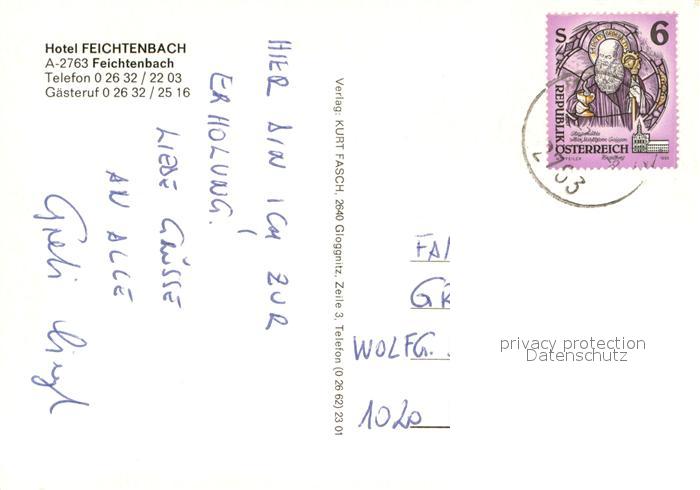 Hotel FEICHTENBACH
A-2763 Feichtenbach
Telefon 0 26 32 / 22 03
Gästeruf 0 26 32 / 25 16
HIER BIN ICH ZUR
ERHOLUNG!
LIEBE GRÜSSE
AN ALLE
Verlag: KURT FASCH, 2640 Gloggnitz, Zeile 3, Telefon (0 26 62) 23 01
S 6
REPUBLIK
ÖSTERREICH
2763
FA
GR
WOLFG.
1020
privacy protection
Datenschutz